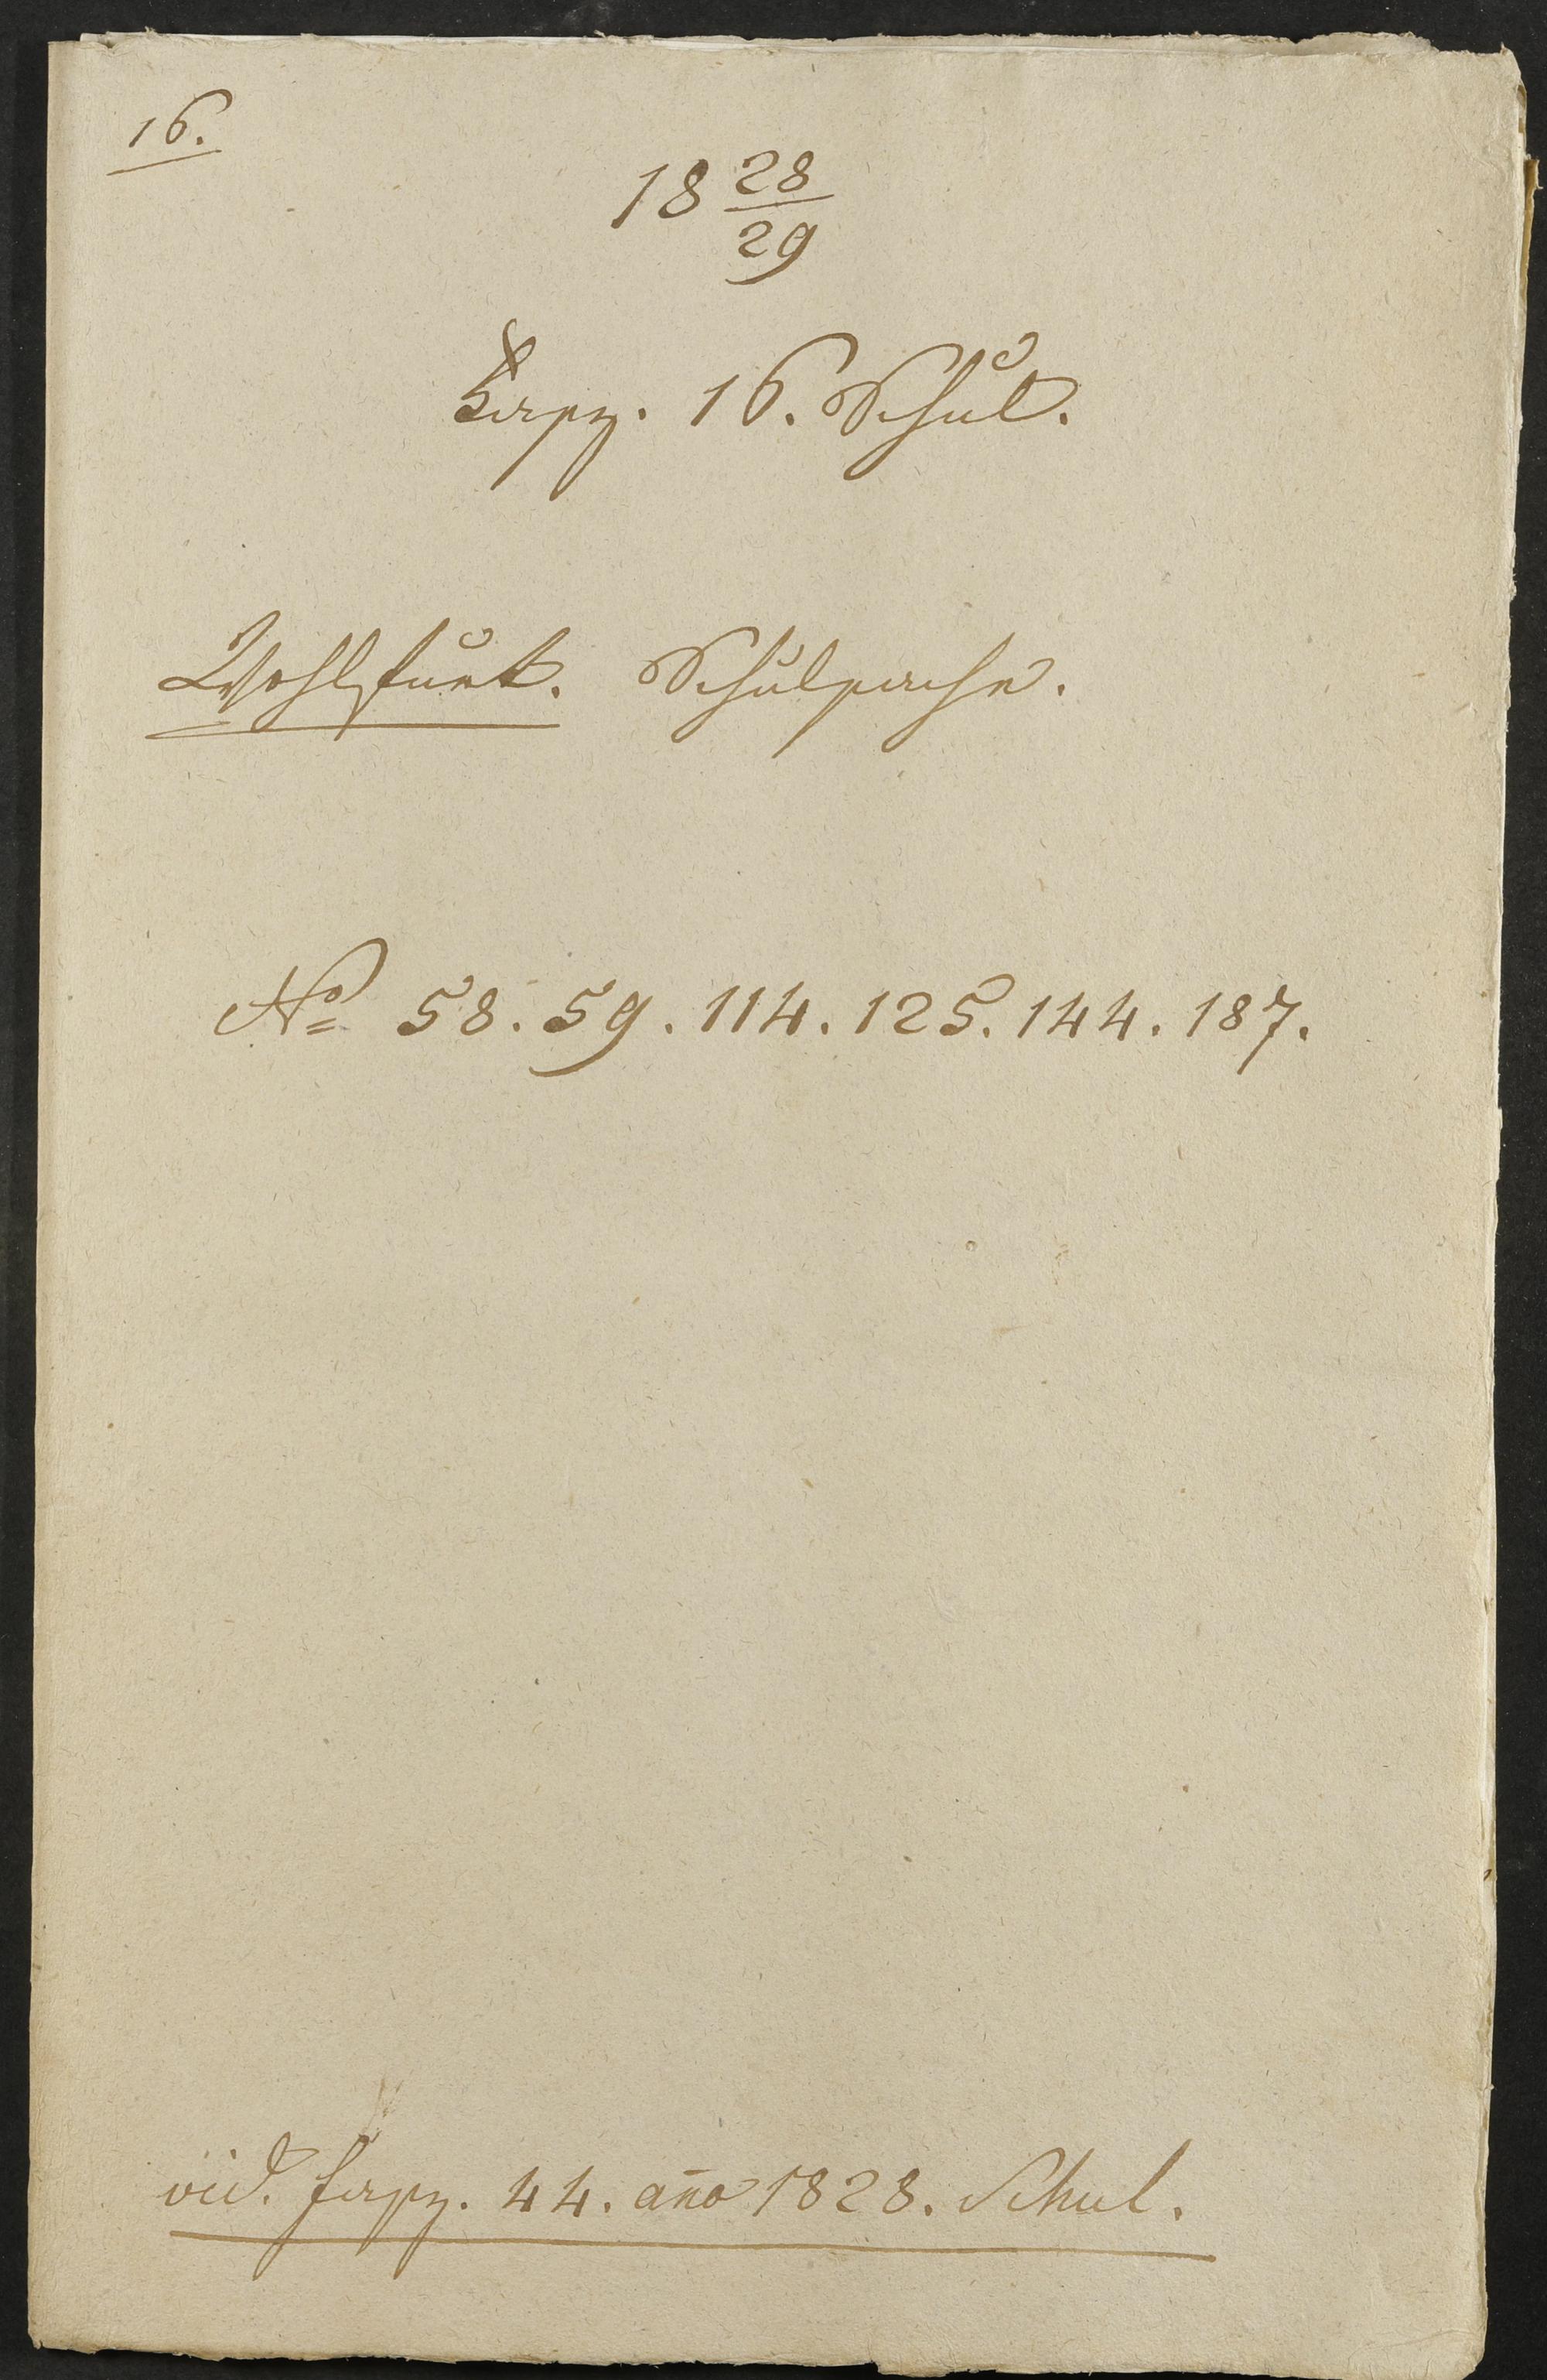 16.
18 28/29
Fasz. 16. Schul.
Wohlfurt. Schulsache.
No 58. 59. 114. 125. 144. 187.
vid. fasz. 44. año 1828. Schul.